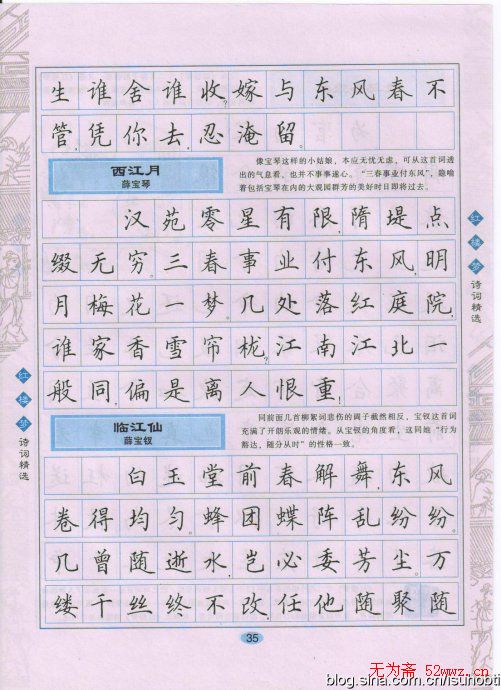 生谁舍谁收?嫁与东风春不
管,凭你去,忍淹留。
西江月
薛宝琴
像宝琴这样的小姑娘,本应无忧无虑,可从这首词透
出的气息看,也并不事事遂心。“三春事业付东风”,隐喻
着包括宝琴在内的大观园群芳的美好时日即将过去。
汉苑零星有限,隋堤点
缀无穷。三春事业付东风,明
月梅花一梦。几处落红庭院,
谁家香雪帘栊?江南江北一
般同,偏是离人恨重!
临江仙
薛宝钗
同前面几首柳絮词悲伤的调子截然相反,宝钗这首词
充满了开朗乐观的情绪。从宝钗的角度看,这同她“行为
豁达,随分从时”的性格一致。
白玉堂前春解舞,东风
卷得均匀。蜂团蝶阵乱纷纷。
几曾随逝水,岂必委芳尘。万
缕千丝终不改,任他随聚随
35
红楼梦
诗词精选
红楼梦
诗词精选
无为斋 52wwz.cn
blog.sina.com.cn/isuhobti